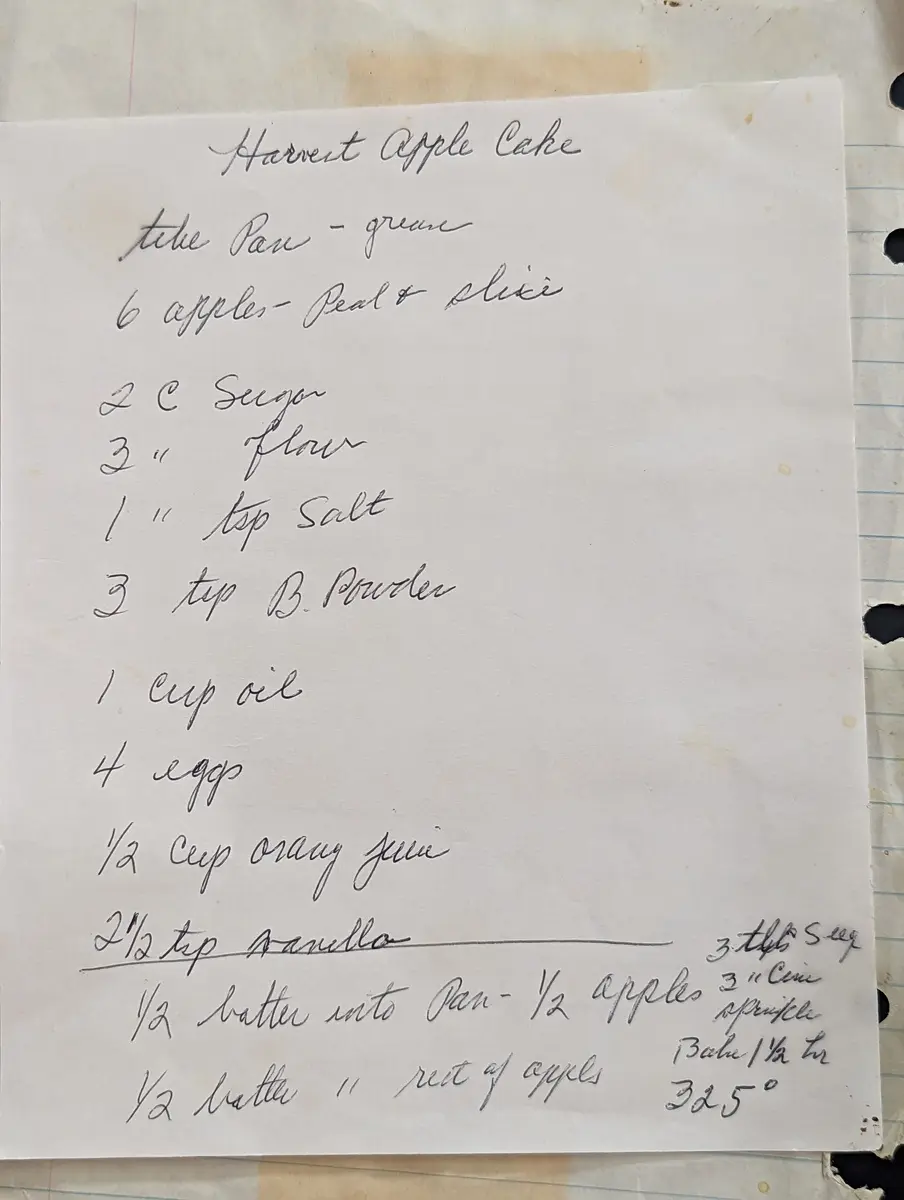 Harvest Apple Cake
tube Pan - grease
6 apples - Peal & slice
2 C Sugar
3 " flour
1 " tsp Salt
3 tsp B. Powder
1 Cup oil
4 eggs
1/2 Cup orang juice
2 1/2 tsp vanilla
1/2 batter into Pan - 1/2 apples
1/2 batter " rest of apples
3 tbls Sug
3 " Cin
sprinkle
Bake 1 1/2 hr
325°